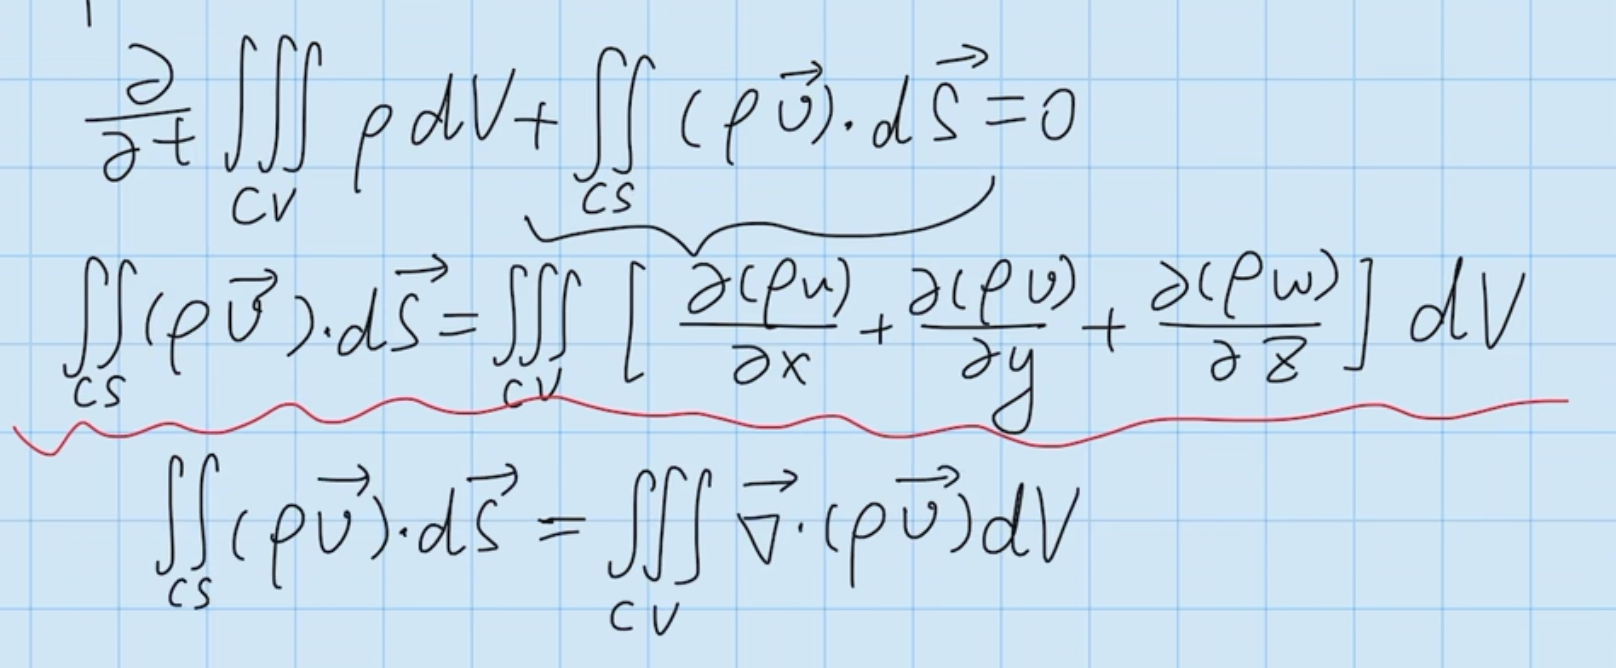 ∂/∂t ∭_CV ρ dV + ∬_CS (ρv⃗)·dS⃗ = 0
∬_CS (ρv⃗)·dS⃗ = ∭_CV [ ∂(ρu)/∂x + ∂(ρv)/∂y + ∂(ρw)/∂z ] dV
∬_CS (ρv⃗)·dS⃗ = ∭_CV ∇⃗·(ρv⃗)dV